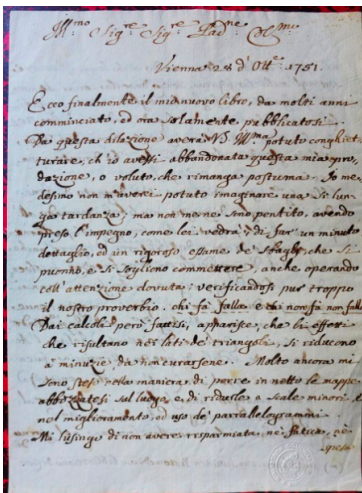 Ill:mo Sig:re Sig:re Pad:ne Col:mo
Vienna 28 d' Ott:e 1751.
Ecco finalmente il mio nuovo libro, da molti anni
cominciato, ed ora solamente pubblicatosi.
Da questa dilazione averà VS Ill:ma potuto conghiet-
turare, ch'io avessi abbandonata questa mia pro-
duzione, o voluto, che rimanga postuma. Io me-
desimo non m'averei potuto imaginare una sì lun-
ga tardanza; ma non me ne sono pentito, avendo
preso l'impegno, come lei vedrà, di far un minuto
dettaglio, ed un rigoroso essame de' sbagli, che si
puonno, e si sogliono commettere, anche operando
coll'attenzione dovuta; verificandosi pur troppo
il nostro proverbio. chi fà falla e chi non fà non falla
Dai calcoli però fattisi, apparisce, che li effetti
che risultano nei lati de' triangoli, si riducono
à minuzie, da non curarsene. Molto ancora mi
sono steso nella maniera, di porre in netto le mappe
abbozzatesi sul luogo, e di ridurle a scale minori, e
nel miglioramento, ed uso de' parrallelogrammi.
Mi lusingo di non avere risparmiata, nè fatica, nè
spesa